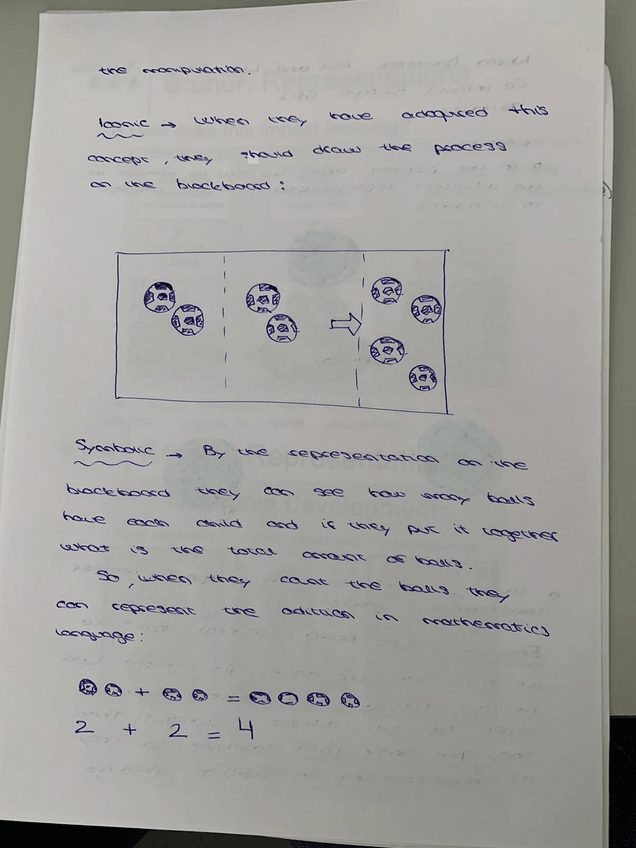 the manipulation.
Iconic → When they have adequired this
concept, they should draw the process
on the blackboard:
Symbolic → By the representation on the
blackboard they can see how many balls
have each child and if they put it together
what is the total amount of balls.
So, when they count the balls they
can represent the adittion in mathematics
language:
+ =
2 + 2 = 4